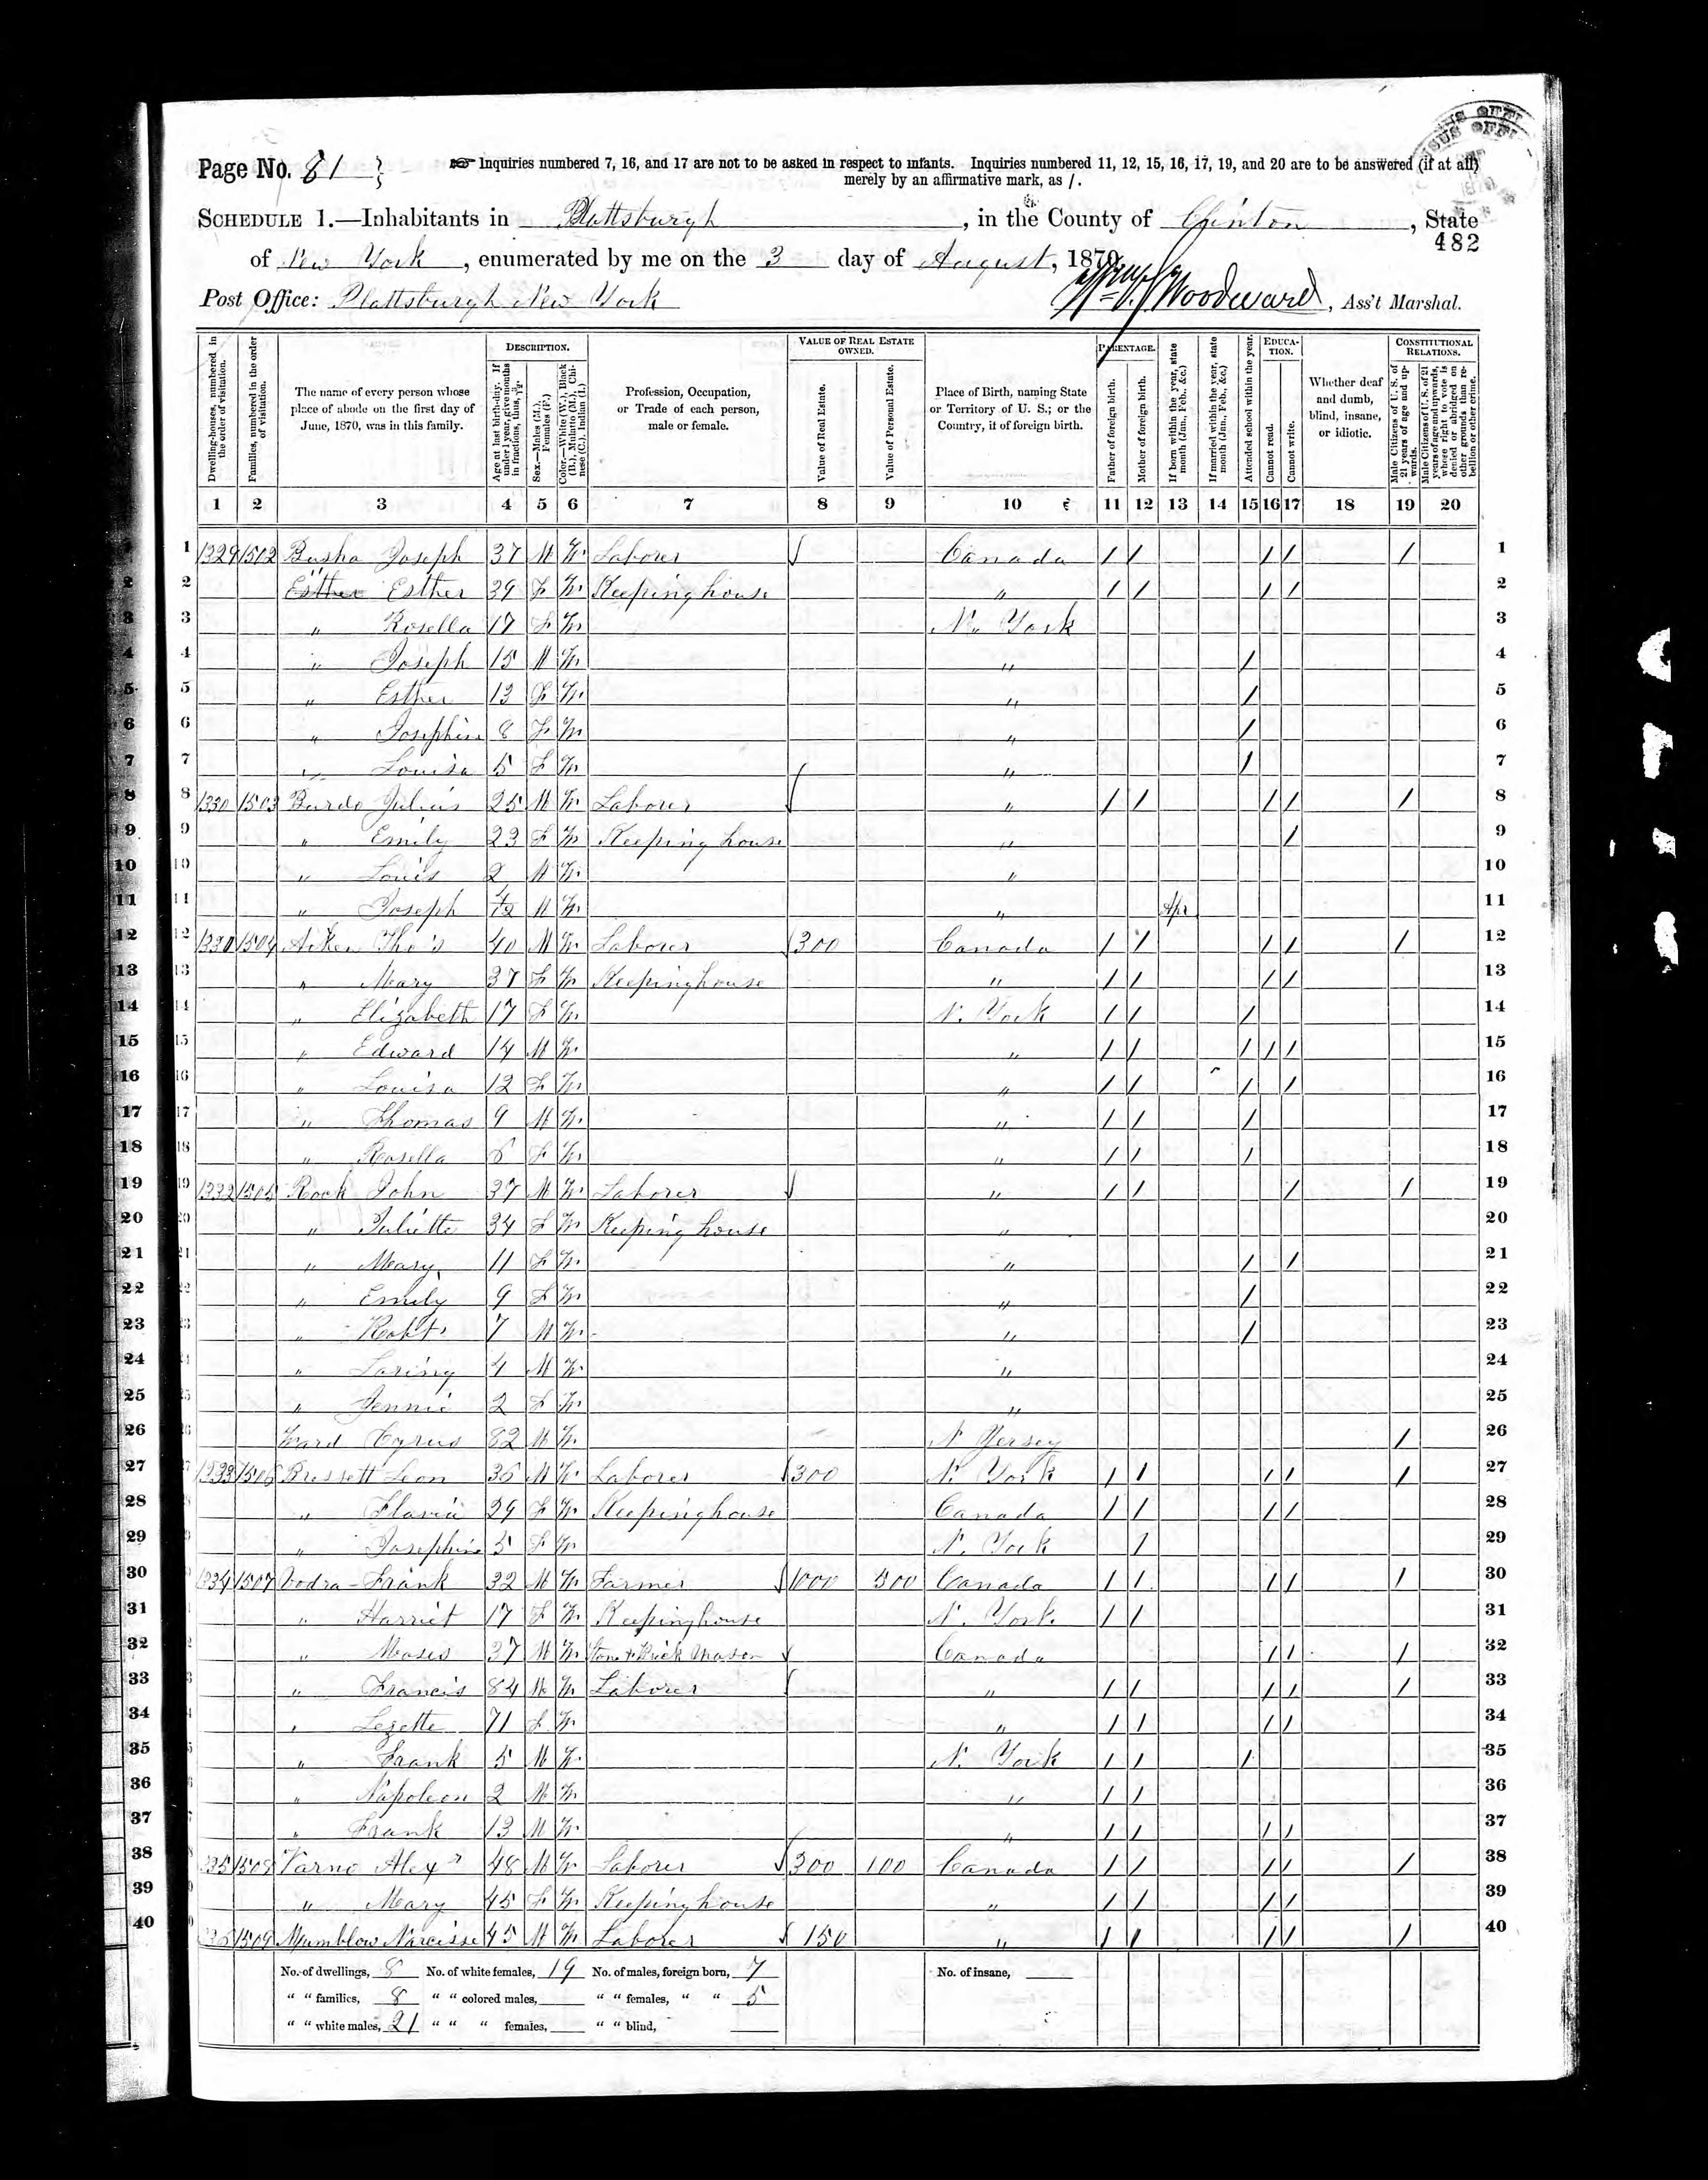 Page No. 81
Inquiries numbered 7, 16, and 17 are not to be asked in respect to infants. Inquiries numbered 11, 12, 15, 16, 17, 19, and 20 are to be answered (if at all)
merely by an affirmative mark, as /.
SCHEDULE 1.—Inhabitants in Plattsburgh, in the County of Clinton, State
482
of New York, enumerated by me on the 3 day of August, 1870.
Post Office: Plattsburgh New York Woodward, Ass't Marshal.
Dwelling-houses, numbered in the order of visitation.
Families, numbered in the order of visitation.
The name of every person whose place of abode on the first day of June, 1870, was in this family.
DESCRIPTION.
Age at last birth-day. If under 1 year, give months in fractions, thus, 3/12.
Sex.—Males (M.), Females (F.)
Color.—White (W.), Black (B.), Mulatto (M.), Chinese (C.), Indian (I.)
Profession, Occupation, or Trade of each person, male or female.
VALUE OF REAL ESTATE OWNED.
Value of Real Estate.
Value of Personal Estate.
Place of Birth, naming State or Territory of U. S.; or the Country, if of foreign birth.
PARENTAGE.
Father of foreign birth.
Mother of foreign birth.
If born within the year, state month (Jan., Feb., &c.)
If married within the year, state month (Jan., Feb., &c.)
Attended school within the year.
EDUCATION.
Cannot read.
Cannot write.
Whether deaf and dumb, blind, insane, or idiotic.
CONSTITUTIONAL RELATIONS.
Male Citizens of U. S. of 21 years of age and upwards.
Male Citizens of U. S. of 21 years of age and upwards, whose right to vote is denied or abridged on other grounds than rebellion or other crime.
1 2 3 4 5 6 7 8 9 10 11 12 13 14 15 16 17 18 19 20
1 1329 1502 Busha Joseph 37 M W. Laborer Canada / / / / / 1
2 Esther Esther 39 F W. Keeping house " / / / / 2
3 " Rosella 17 F W. N. York 3
4 " Joseph 15 M W. " / 4
5 " Esther 13 F W. " / 5
6 " Josephine 8 F W. " / 6
7 " Louisa 5 F W. " / 7
8 1330 1503 Burdo Julius 25 M W. Laborer " / / / / / 8
9 " Emily 23 F W. Keeping house " / 9
10 " Louis 2 M W. " 10
11 " Joseph M W. " Apr 11
12 1504 Aiken Tho's 40 M W. Laborer 300 Canada / / / / / 12
13 " Mary 37 F W. Keeping house " / / / / 13
14 " Elizabeth 17 F W. N. York / / / 14
15 " Edward 14 M W. " / / / / / 15
16 " Louisa 12 F W. " / / / / 16
17 " Thomas 9 M W. " / / / 17
18 " Rosella 6 F W. " / / / 18
19 1332 1505 Rock John 37 M W. Laborer " / / / / 19
20 " Juliette 34 F W. Keeping house " 20
21 " Mary 11 F W. " / / 21
22 " Emily 9 F W. " / 22
23 " Robt 7 M W. " / 23
24 " Loring 4 M W. " 24
25 " Jennie 2 F W. " 25
26 Ward Cyrus 82 M W. N Jersey / 26
27 1333 1506 Bressett Leon 36 M W. Laborer 300 N. York / / / / / 27
28 " Flavia 29 F W. Keeping house Canada / / / / 28
29 " Josephine 5 F W. N. York / 29
30 1334 1507 Vodra Frank 32 M W. Farmer 1000 300 Canada / / / / / 30
31 " Harriet 17 F W. Keeping house N. York / / 31
32 " Moses 37 M W. Stone & Brick Mason Canada / / / 32
33 " Francis 84 M W. Laborer " / / / / / 33
34 " Lezette 71 F W. " / / / / 34
35 " Frank 5 M W. N. York / / / 35
36 " Napoleon 2 M W. " / / 36
37 " Frank 13 M W. " / / / / 37
38 1335 1508 Varno Alexr 48 M W. Laborer 300 100 Canada / / / / / 38
39 " Mary 45 F W. Keeping house " / / / / 39
40 1336 1509 Mumblow Narcisse 45 M W. Laborer 150 " / / / / / 40
No. of dwellings, 8 No. of white females, 19 No. of males, foreign born, 7 No. of insane,
" " families, 8 " " colored males, " " females, " " 5
" " white males, 21 " " " females, " " blind,